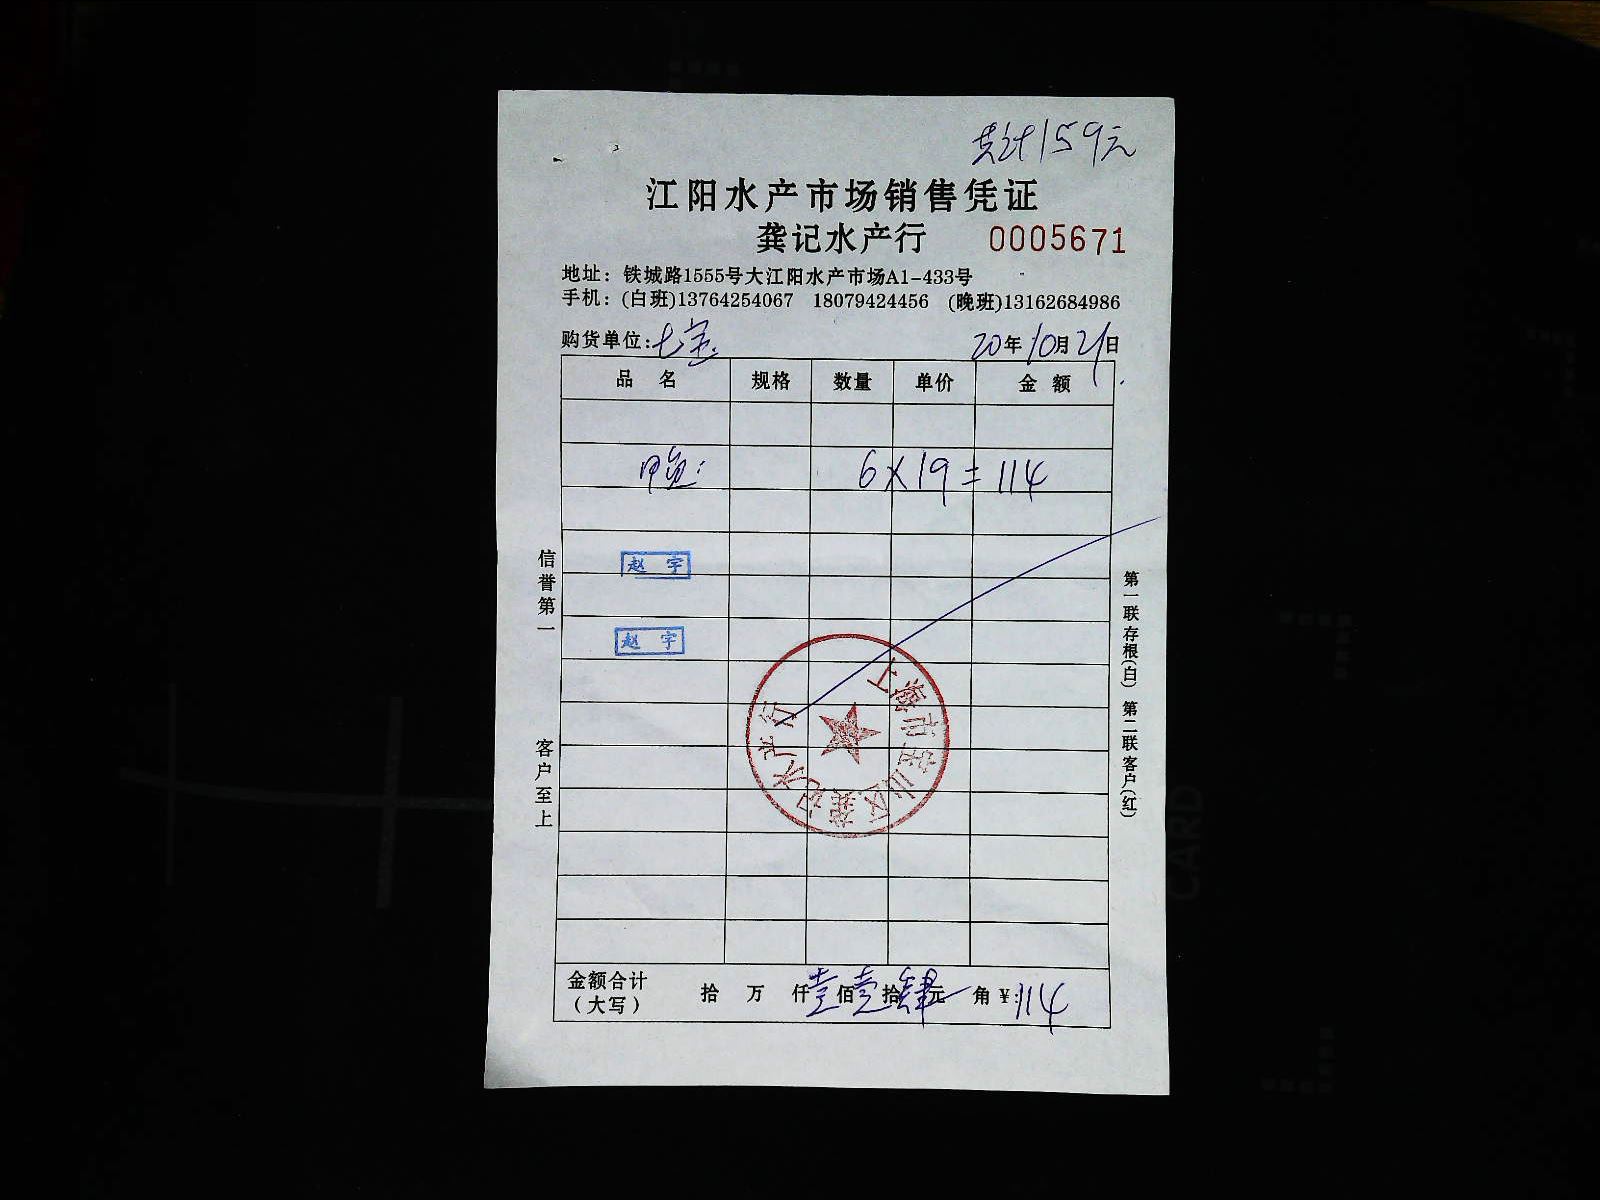 共计159元
江阳水产市场销售凭证
龚记水产行 0005671
地址：铁城路1555号大江阳水产市场A1-433号
手机：(白班)13764254067 18079424456 (晚班)13162684986
购货单位:七宝 20年10月21日
品名 规格 数量 单价 金额
甲鱼: 6×19=114
赵宇
赵宇
上海市宝山区龚记水产行
信誉第一 客户至上
第一联存根(白) 第二联客户(红)
金额合计 拾万仟壹佰壹拾肆元角￥:114
（大写）
CARD